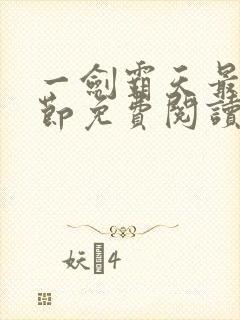 一劍霸天最
節免費閱讀
妖4